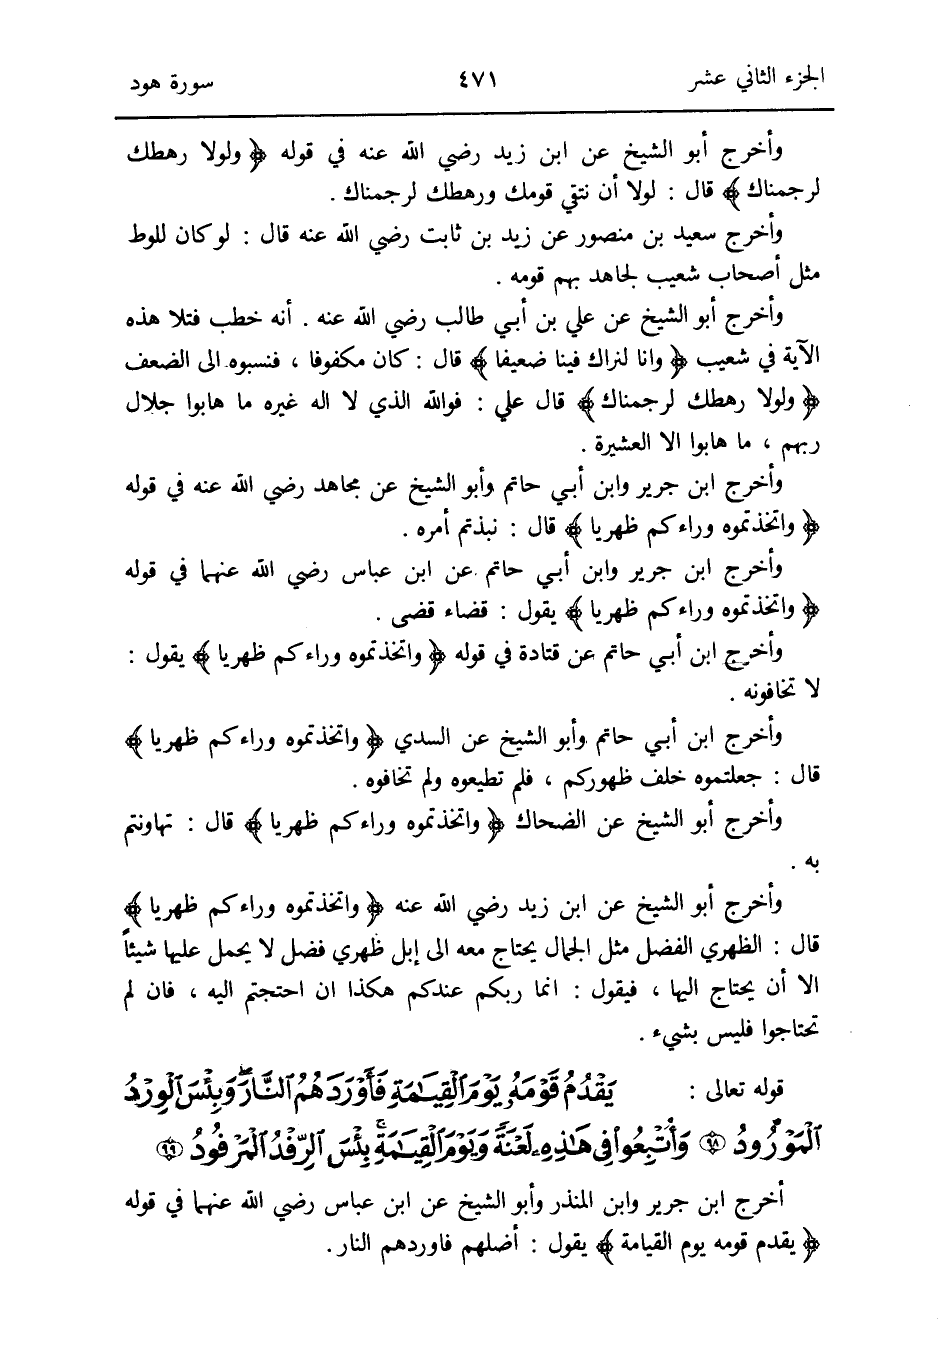 الجزء الثاني عشر ٤٧١ سورة هود
وأخرج أبو الشيخ عن ابن زيد رضي الله عنه في قوله ﴿ ولولا رهطك
لرجمناك ﴾ قال : لولا أن نتقي قومك ورهطك لرجمناك .
وأخرج سعيد بن منصور عن زيد بن ثابت رضي الله عنه قال : لو كان للوط
مثل أصحاب شعيب لجاهد بهم قومه .
وأخرج أبو الشيخ عن علي بن أبي طالب رضي الله عنه . أنه خطب فتلا هذه
الآية في شعيب ﴿ وانا لنراك فينا ضعيفا ﴾ قال : كان مكفوفا ، فنسبوه الى الضعف
﴿ ولولا رهطك لرجمناك ﴾ قال علي : فوالله الذي لا اله غيره ما هابوا جلال
ربهم ، ما هابوا الا العشيرة .
وأخرج ابن جرير وابن أبي حاتم وأبو الشيخ عن مجاهد رضي الله عنه في قوله
﴿ واتخذتموه وراءكم ظهريا ﴾ قال : نبذتم أمره .
وأخرج ابن جرير وابن أبي حاتم عن ابن عباس رضي الله عنهما في قوله
﴿ واتخذتموه وراءكم ظهريا ﴾ يقول : قضاء قضى .
وأخرج ابن أبي حاتم عن قتادة في قوله ﴿ واتخذتموه وراءكم ظهريا ﴾ يقول :
لا تخافونه .
وأخرج ابن أبي حاتم وأبو الشيخ عن السدي ﴿ واتخذتموه وراءكم ظهريا ﴾
قال : جعلتموه خلف ظهوركم ، فلم تطيعوه ولم تخافوه .
وأخرج أبو الشيخ عن الضحاك ﴿ واتخذتموه وراءكم ظهريا ﴾ قال : تهاونتم
به .
وأخرج أبو الشيخ عن ابن زيد رضي الله عنه ﴿ واتخذتموه وراءكم ظهريا ﴾
قال : الظهري الفضل مثل الجمال يحتاج معه الى إبل ظهري فضل لا يحمل عليها شيئاً
الا أن يحتاج اليها ، فيقول : انما ربكم عندكم هكذا ان احتجتم اليه ، فان لم
تحتاجوا فليس بشيء .
قوله تعالى : يَقْدُمُ قَوْمَهُۥ يَوْمَ ٱلْقِيَـٰمَةِ فَأَوْرَدَهُمُ ٱلنَّارَ ۖ وَبِئْسَ ٱلْوِرْدُ
ٱلْمَوْرُودُ ٩٨ وَأُتْبِعُوا۟ فِى هَـٰذِهِۦ لَعْنَةً وَيَوْمَ ٱلْقِيَـٰمَةِ ۚ بِئْسَ ٱلرِّفْدُ ٱلْمَرْفُودُ ٩٩
أخرج ابن جرير وابن المنذر وأبو الشيخ عن ابن عباس رضي الله عنهما في قوله
﴿ يقدم قومه يوم القيامة ﴾ يقول : أضلهم فاوردهم النار .